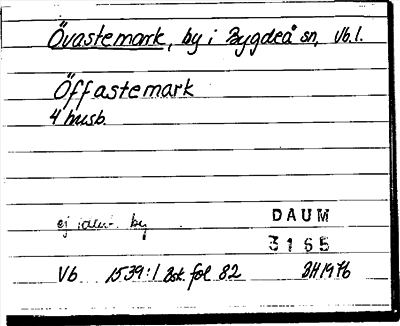 Övastemark, by i Bygdeå sn, Vb.l.
Öffastemark
4 husb.
ej ident. by
DAUM
3165
Vb 1539:1 Bst. fol 82 BH 1976